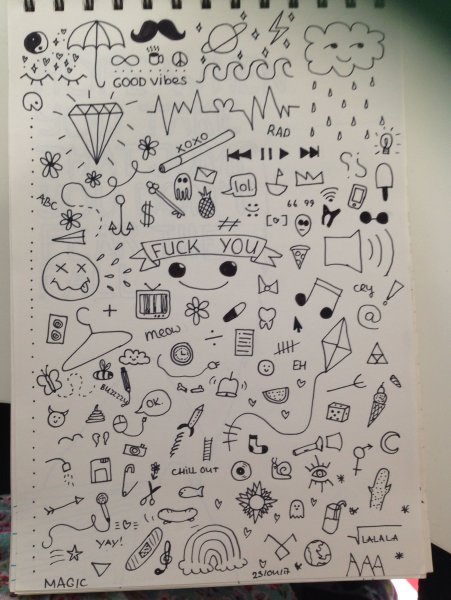 GOOD VIBES
XOXO
RAD
ABC
$
lol.
#
“ ” 99
FUCK YOU
cry
!
@
meow
÷
EH
BUZZZZ
OK.
CHILL OUT
YAY!
LALALA
AAA
MAGIC